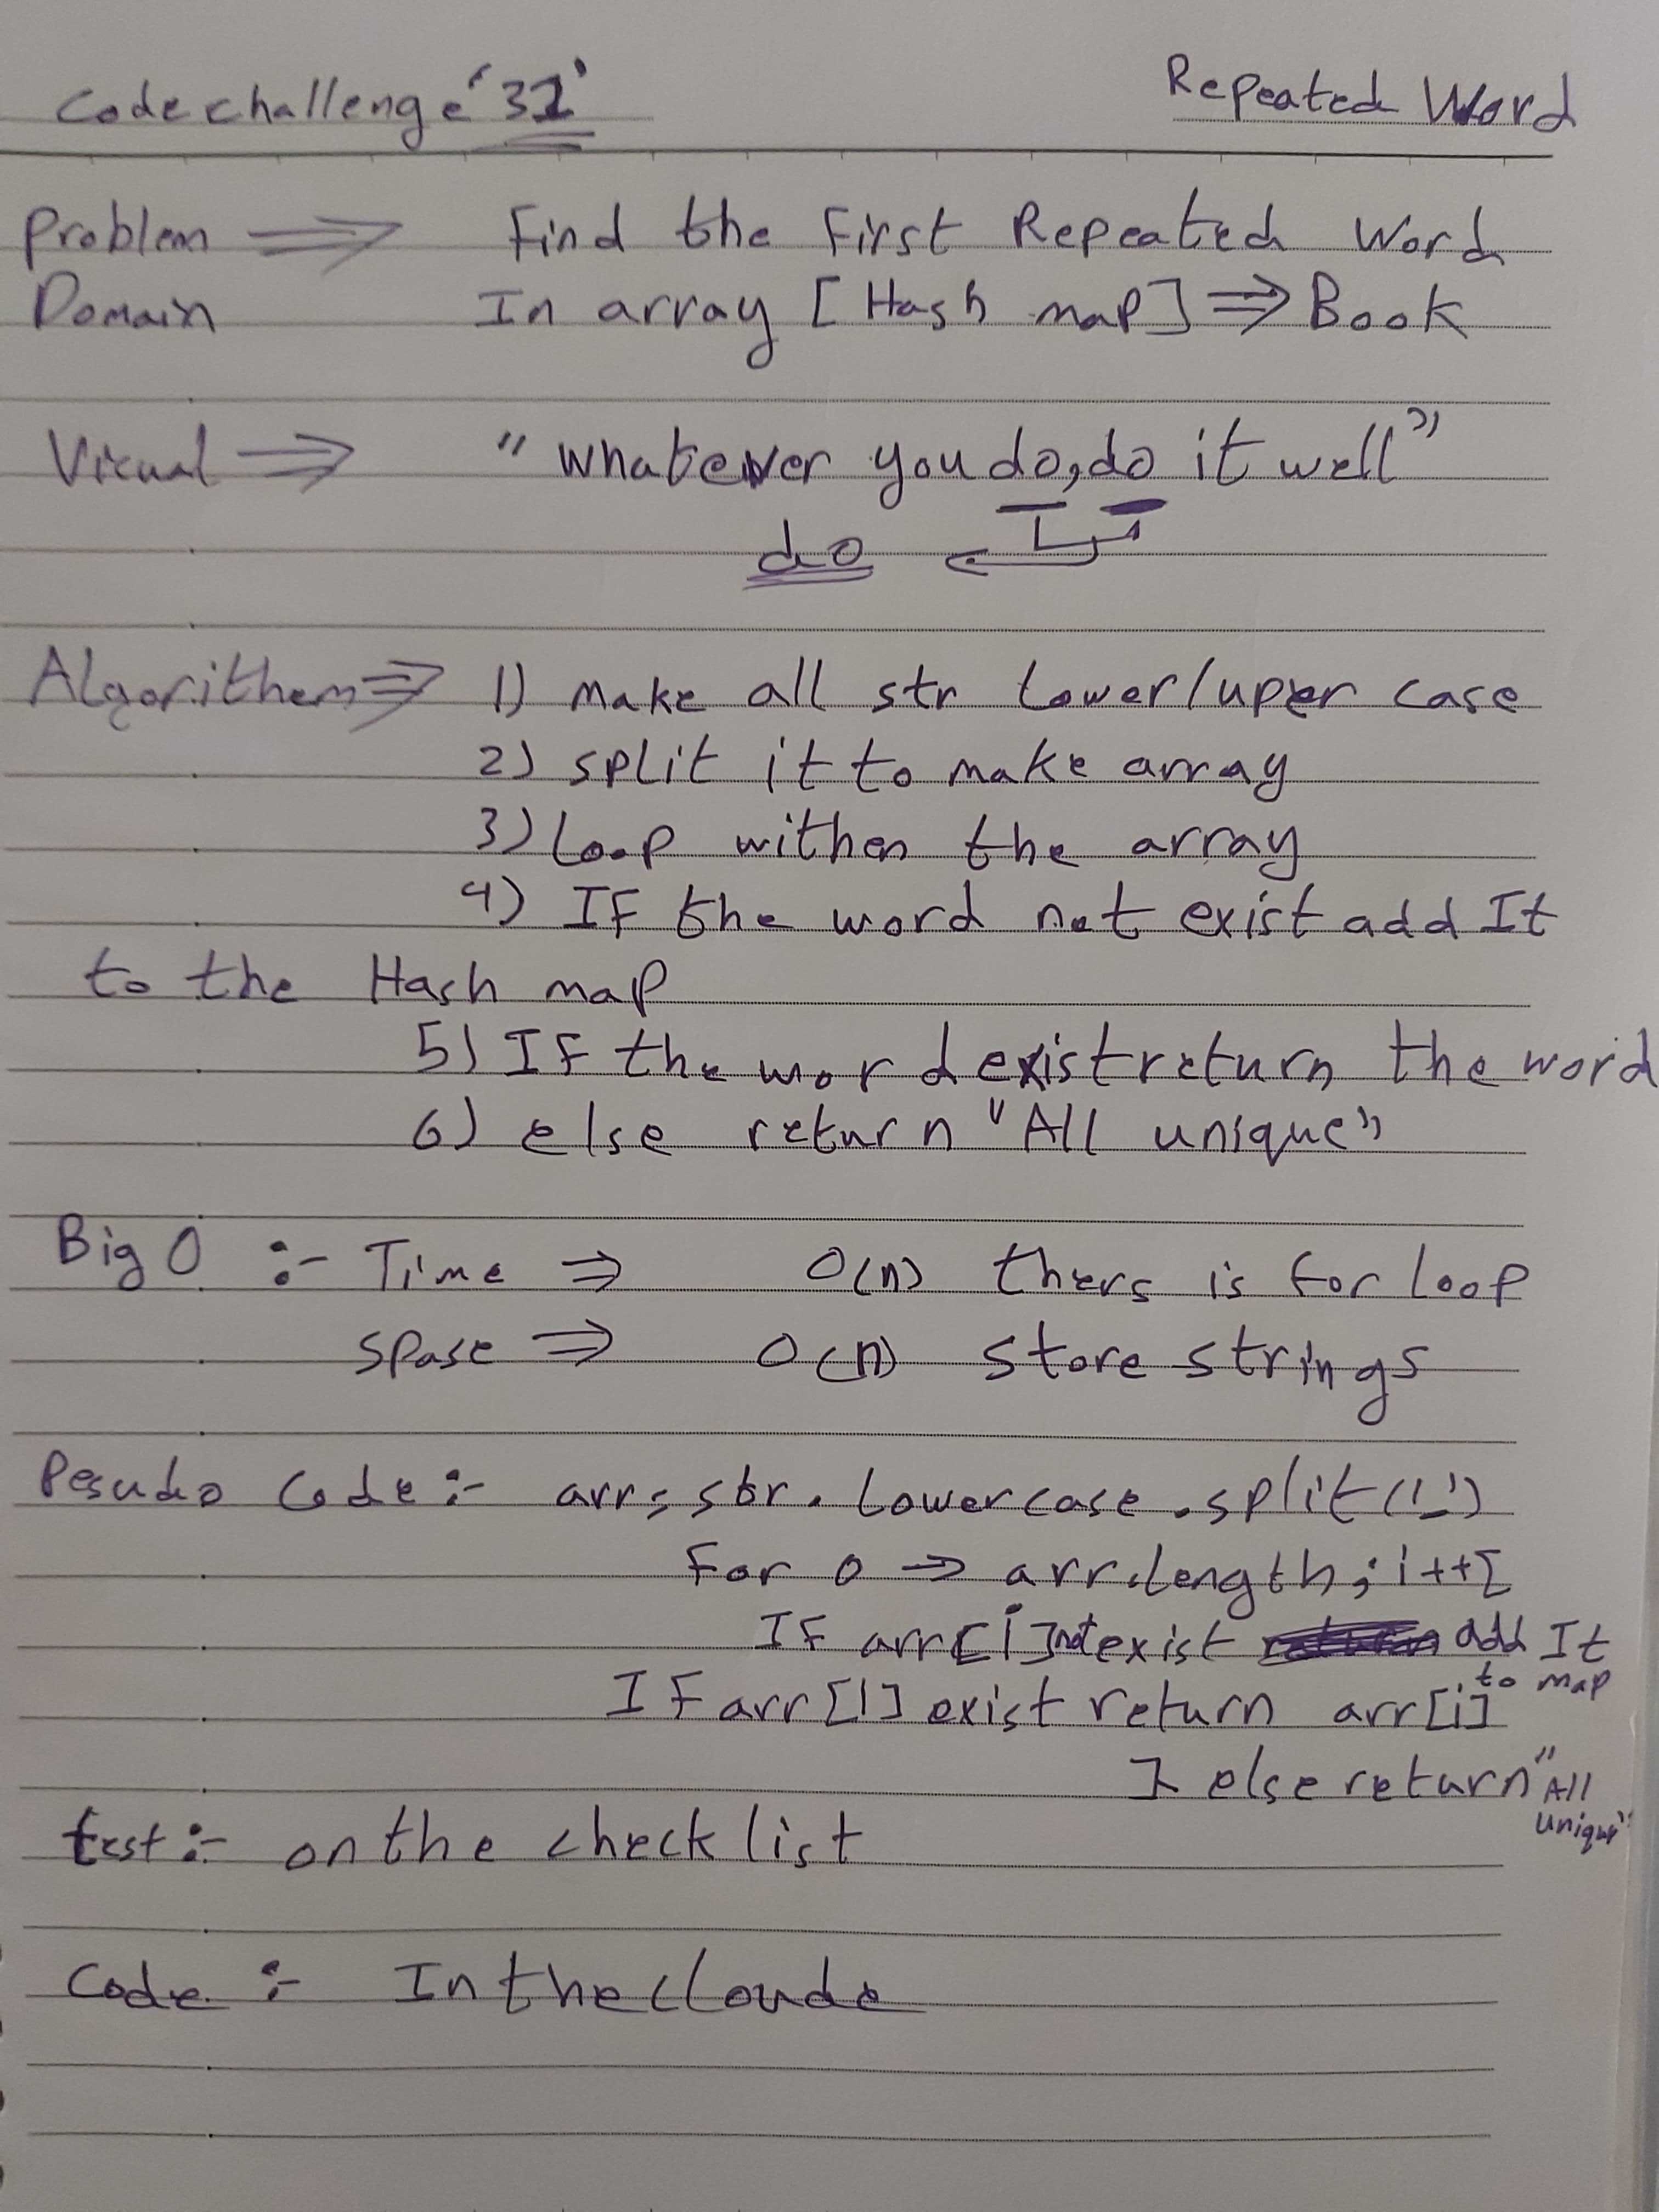 Code challenge '31' Repeated Word
Problem ⇒ Find the First Repeated Word
Domain In array [Hash map] ⇒ Book
Visual ⇒ "whatever you do, do it well"
do
Algorithem ⇒ 1) make all str Lower/uper case
2) split it to make array
3) Loop withen the array
4) IF the word not exist add It
to the Hash map
5) IF the word exist return the word
6) else return "All unique"
Big O :- Time ⇒ O(n) thers is for loop
spase ⇒ O(n) store strings
Pesudo Code :- arr = str. Lowercase .split(' ')
For 0 → arr.length; i++{
IF arr[i] not exist add It
to map
IF arr[i] exist return arr[i]
} else return "All
unique"
test :- on the check list
Code :- In the cloude